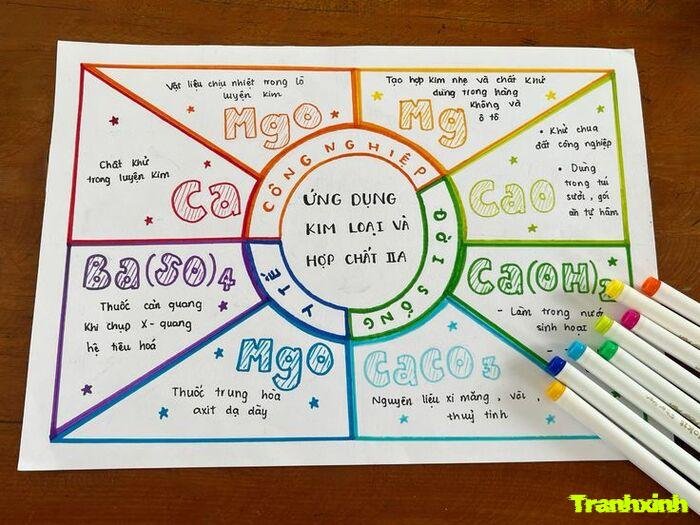 Vật liệu chịu nhiệt trong lò
luyện kim
MgO
Tạo hợp kim nhẹ và chất khử
dùng trong hàng
không và
ô tô
Mg
Chất khử
trong luyện kim
Ca
• Khử chua
đất công nghiệp
• Dùng
trong túi
sưởi, gói
ăn tự hâm
CaO
CÔNG NGHIỆP
ĐỜI SỐNG
Y TẾ
ỨNG DỤNG
KIM LOẠI VÀ
HỢP CHẤT IIA
Ba(SO)4
Thuốc cản quang
Khi chụp X-quang
hệ tiêu hoá
Ca(OH)2
- Làm trong nước
sinh hoạt
-
MgO
Thuốc trung hòa
axit dạ dày
CaCO3
Nguyên liệu xi măng, vôi,
thuỷ tinh
Tranhxinh